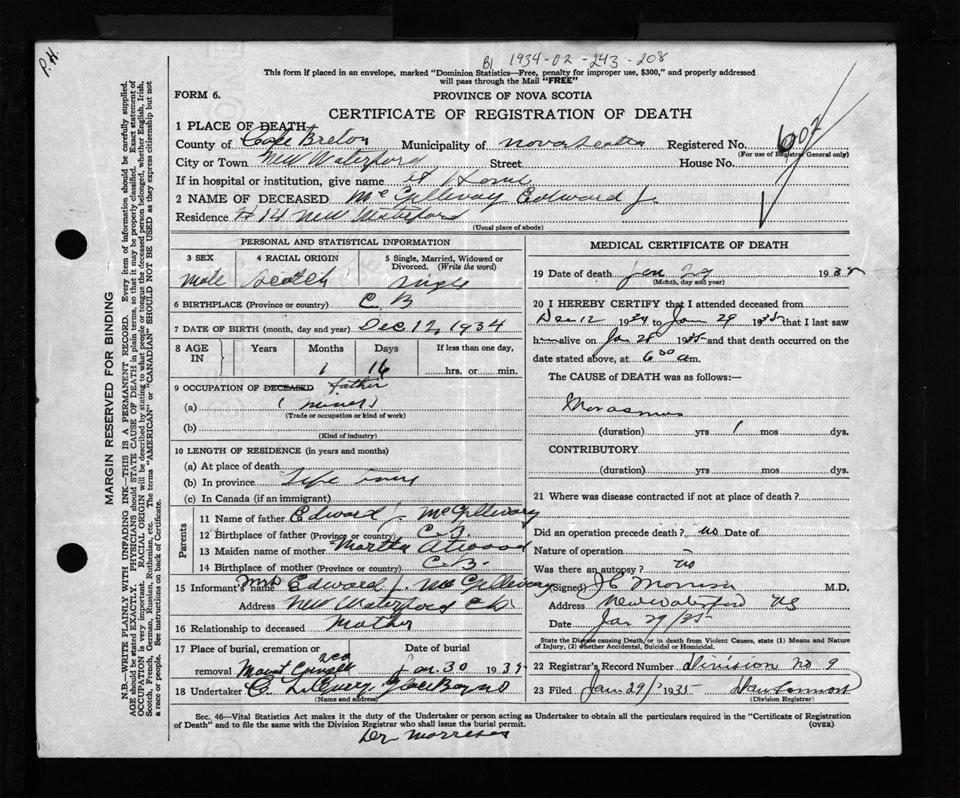 P.H.
B1 1934-02-243-208
This form if placed in an envelope, marked "Dominion Statistics—Free, penalty for improper use, $300," and properly addressed
will pass through the Mail "FREE"
FORM 6.
PROVINCE OF NOVA SCOTIA
CERTIFICATE OF REGISTRATION OF DEATH
1 PLACE OF DEATH
County of Cape Breton Municipality of Nova Scotia Registered No. 607
(For use of Registrar General only)
City or Town New Waterford Street House No.
If in hospital or institution, give name at Home
2 NAME OF DECEASED McGillivay Edward J.
Residence #14 New Waterford
(Usual place of abode)
MARGIN RESERVED FOR BINDING
N.B.—WRITE PLAINLY WITH UNFADING INK—THIS IS A PERMANENT RECORD. Every item of information should be carefully supplied.
AGE should be stated EXACTLY. PHYSICIANS should STATE CAUSE OF DEATH in plain terms, so that it may be properly classified. Exact statement of
OCCUPATION is very important. RACIAL ORIGIN will be described by stating to what people or tongue the deceased person belonged, whether English, Irish,
Scotch, French, German, Russian, Ruthenian, etc. The terms "AMERICAN" or "CANADIAN" SHOULD NOT BE USED as they express citizenship but not
a race or people. See instructions on back of Certificate.
PERSONAL AND STATISTICAL INFORMATION
3 SEX
male
4 RACIAL ORIGIN
Scotch
5 Single, Married, Widowed or
Divorced. (Write the word)
single
6 BIRTHPLACE (Province or country) C. B
7 DATE OF BIRTH (month, day and year) Dec 12, 1934
8 AGE IN
Years Months Days If less than one day,
1 16 hrs. or min.
9 OCCUPATION OF DECEASED Father
(a) (miner)
(Trade or occupation or kind of work)
(b)
(Kind of industry)
10 LENGTH OF RESIDENCE (in years and months)
(a) At place of death
(b) In province Life time
(c) In Canada (if an immigrant)
Parents
11 Name of father Edward J. McGillivary
12 Birthplace of father (Province or country) C.B.
13 Maiden name of mother Martha Atwood
14 Birthplace of mother C.B.
15 Informant's name Mrs Edward J. McGillivary
Address New Waterford C.B.
16 Relationship to deceased Mother
17 Place of burial, cremation or Date of burial
removal Mount Carmel Jan. 30 1935
18 Undertaker Glace Bay NS
(Name and address)
MEDICAL CERTIFICATE OF DEATH
19 Date of death Jan 29 1935
(Month, day and year)
20 I HEREBY CERTIFY that I attended deceased from
Dec 12 1934 to Jan 29 1935 that I last saw
him alive on Jan 28 1935 and that death occurred on the
date stated above, at 6 30 am.
The CAUSE of DEATH was as follows:—
Marasmus
(duration) yrs 1 mos dys.
CONTRIBUTORY
(duration) yrs mos dys.
21 Where was disease contracted if not at place of death?
Did an operation precede death? no Date of
Nature of operation
Was there an autopsy? no
(Signed) J C Morrison M.D.
Address New Waterford NS
Date Jan 29/35
State the Disease causing Death, or in death from Violent Causes, state (1) Means and Nature
of Injury, (2) whether Accidental, Suicidal or Homicidal.
22 Registrar's Record Number Division no 9
23 Filed Jan 29/1935
(Division Registrar)
Sec. 46—Vital Statistics Act makes it the duty of the Undertaker or person acting as Undertaker to obtain all the particulars required in the "Certificate of Registration
of Death" and to file the same with the Division Registrar who shall issue the burial permit. (OVER)
Dr Morrison